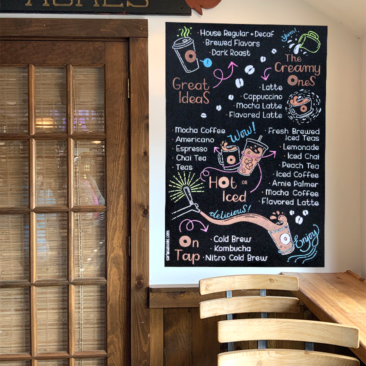 ACRES
· House Regular + Decaf
· Brewed Flavors
· Dark Roast
Great
Ideas
The
Creamy
Ones
Latte
Cappuccino
Mocha Latte
Flavored Latte
Mocha Coffee
Americano
Espresso
Chai Tea
Teas
Wow!
Hot or
Iced
· Fresh Brewed
Iced Teas
· Lemonade
· Iced Chai
· Peach Tea
· Iced Coffee
· Arnie Palmer
· Mocha Coffee
· Flavored Latte
delicious!
Enjoy!
On
Tap
· Cold Brew
· Kombucha
· Nitro Cold Brew